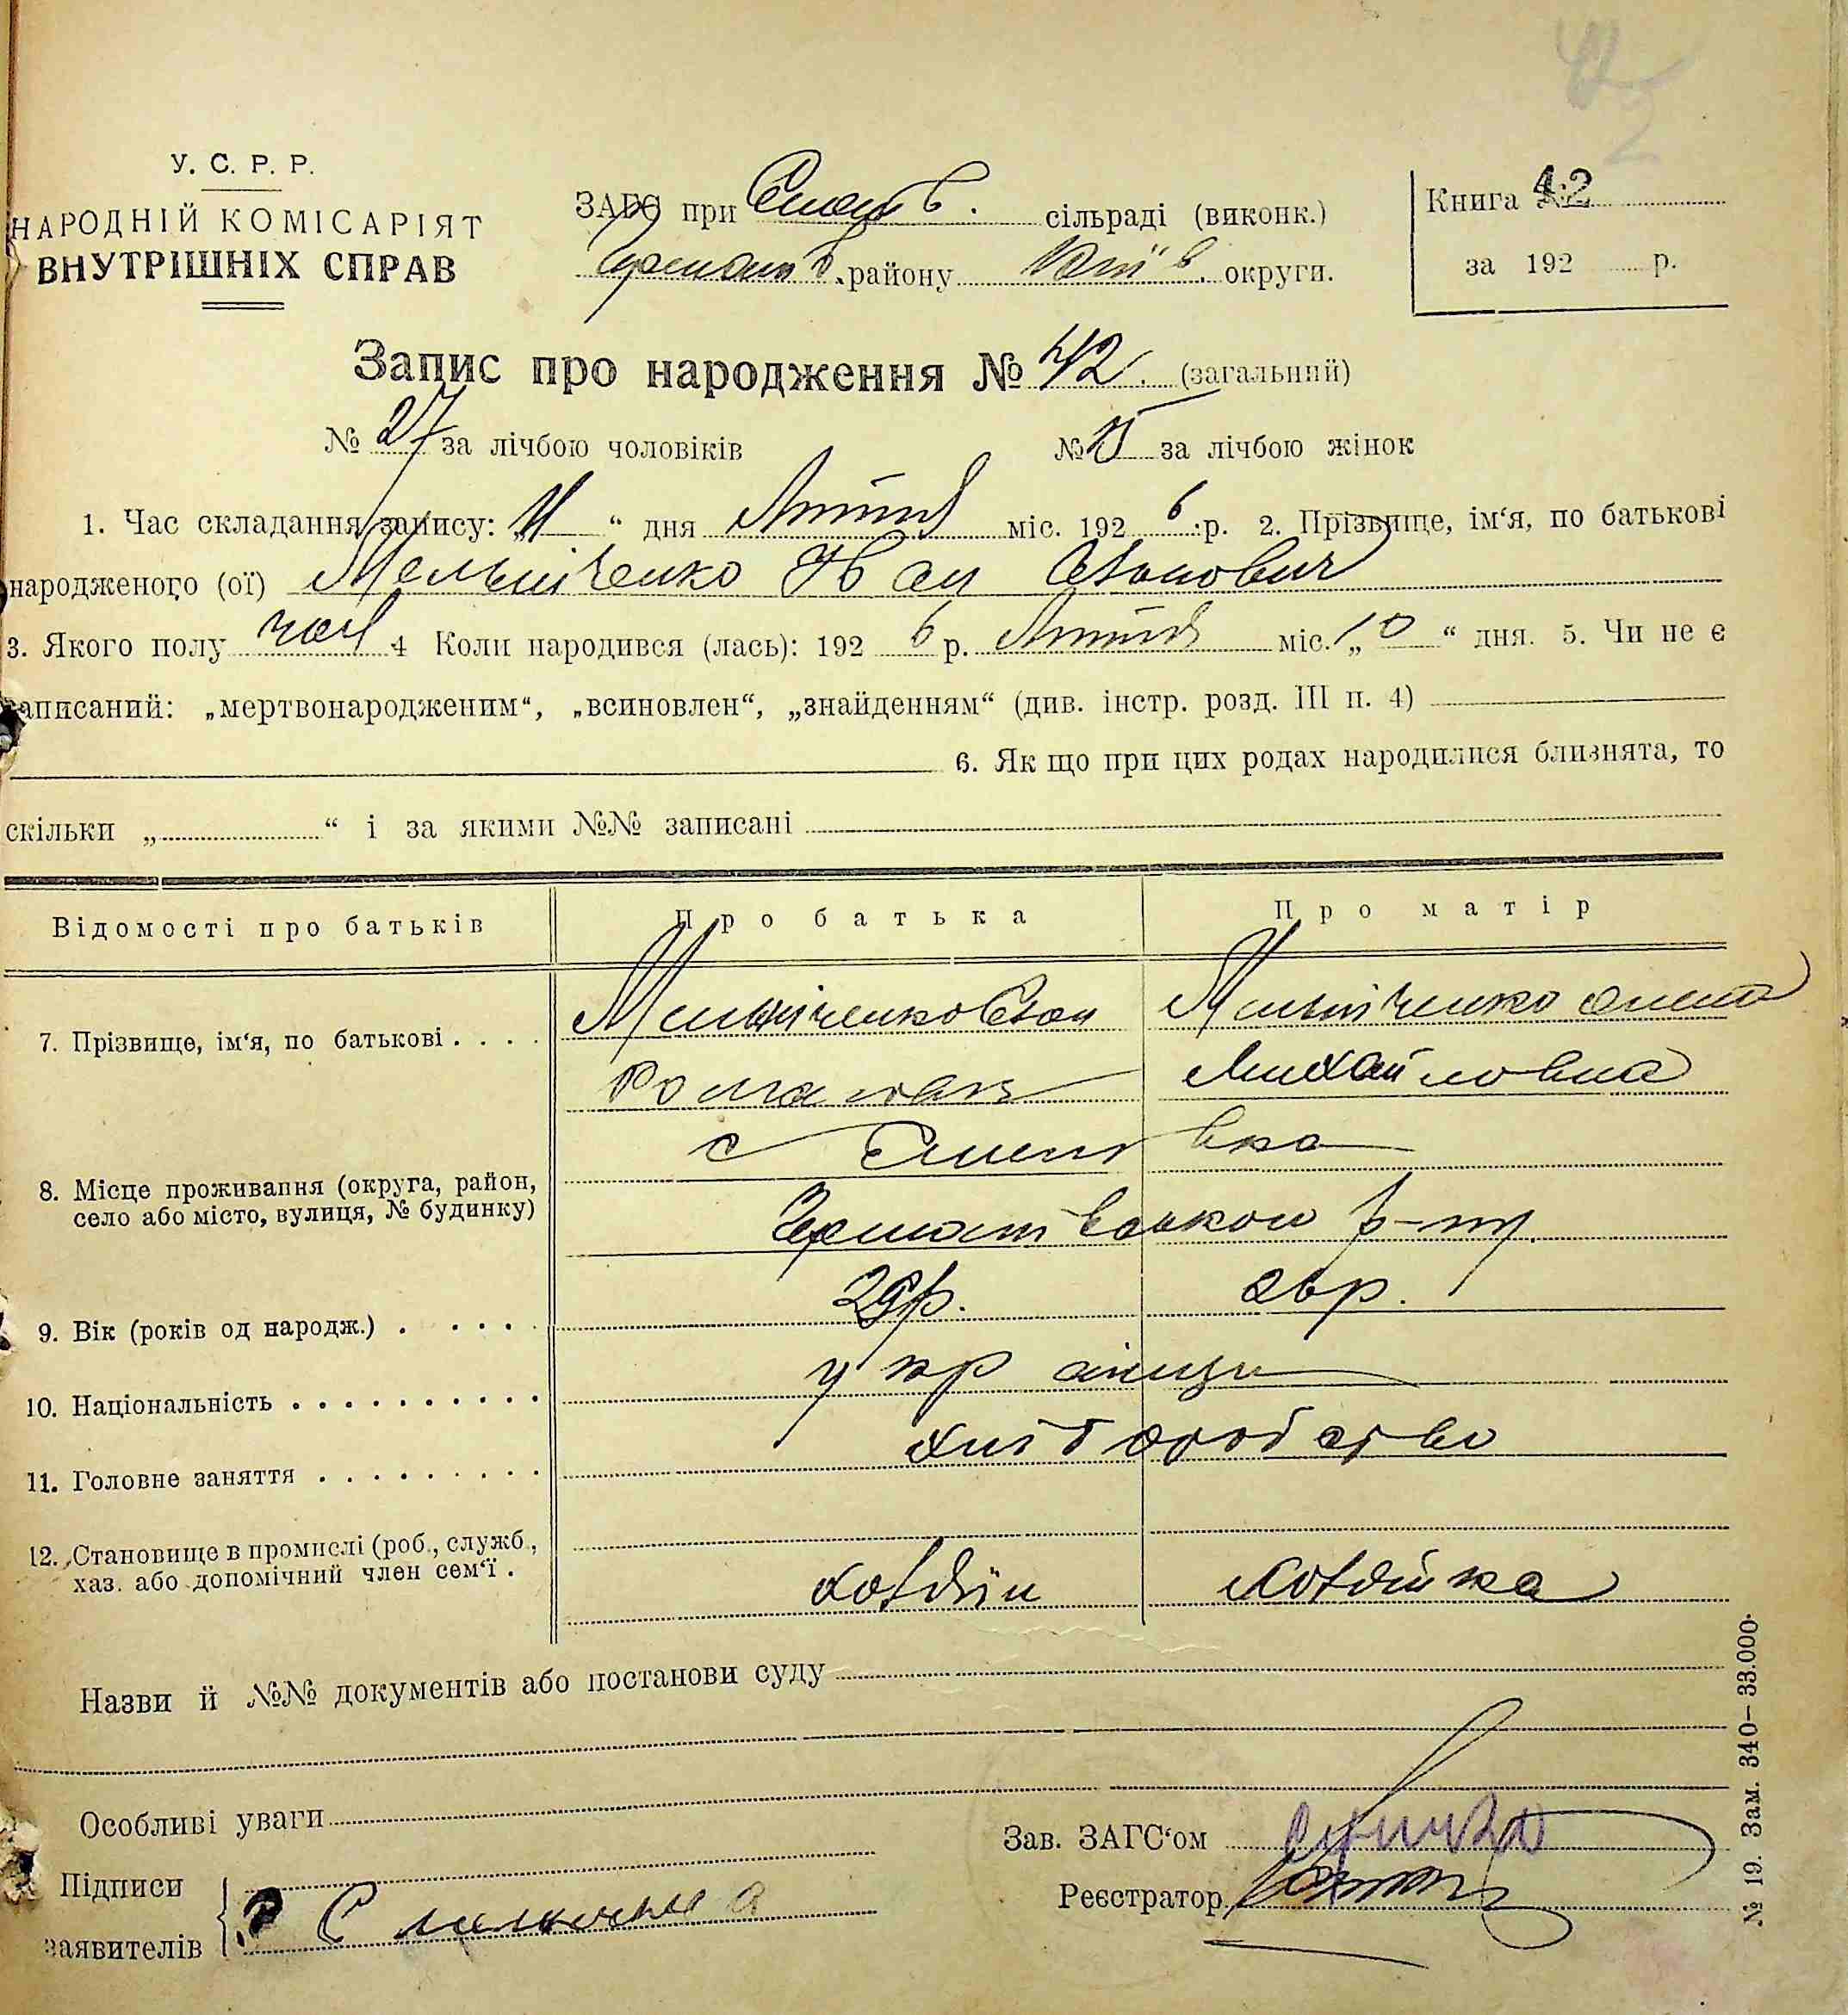 42
У. С. Р. Р.
НАРОДНІЙ КОМІСАРІЯТ
ВНУТРІШНІХ СПРАВ
ЗАГС при сільраді (виконк.)
району Київ. округи.
Книга 42
за 192 р.
Запис про народження № 42. (загальний)
№ 27 за лічбою чоловіків
№ 15 за лічбою жінок
1. Час складання запису: „11“ дня Лютня міс. 1926 р. 2. Прізвище, ім‘я, по батькові
народженого (ої) Мельніченко Іван Степанович
3. Якого полу чол 4 Коли народився (лась): 1926 р. Лютня міс. „10“ дня. 5. Чи не є
записаний: „мертвонародженим“, „всиновлен“, „знайденням“ (див. інстр. розд. III п. 4)
6. Як що при цих родах народилися близнята, то
скільки „ “ і за якими №№ записані
Відомості про батьків
Про батька
Про матір
7. Прізвище, ім‘я, по батькові . . . .
Мельніченко Степан
Романович
Мельніченко Олена
Михайловна
8. Місце проживання (округа, район,
село або місто, вулиця, № будинку)
с
р-ну.
9. Вік (років од народж.) . . . . .
29р.
26р.
10. Національність . . . . . . . . . .
українци
11. Головне заняття . . . . . . . . .
хліборобство
12. Становище в промислі (роб., служб.,
хаз. або допомічний член сем‘ї .
хозяїн
хозяйка
Назви й №№ документів або постанови суду
Особливі уваги
Зав. ЗАГС‘ом
Підписи
заявителів
Реєстратор
№ 19. Зам. 340—33.000.